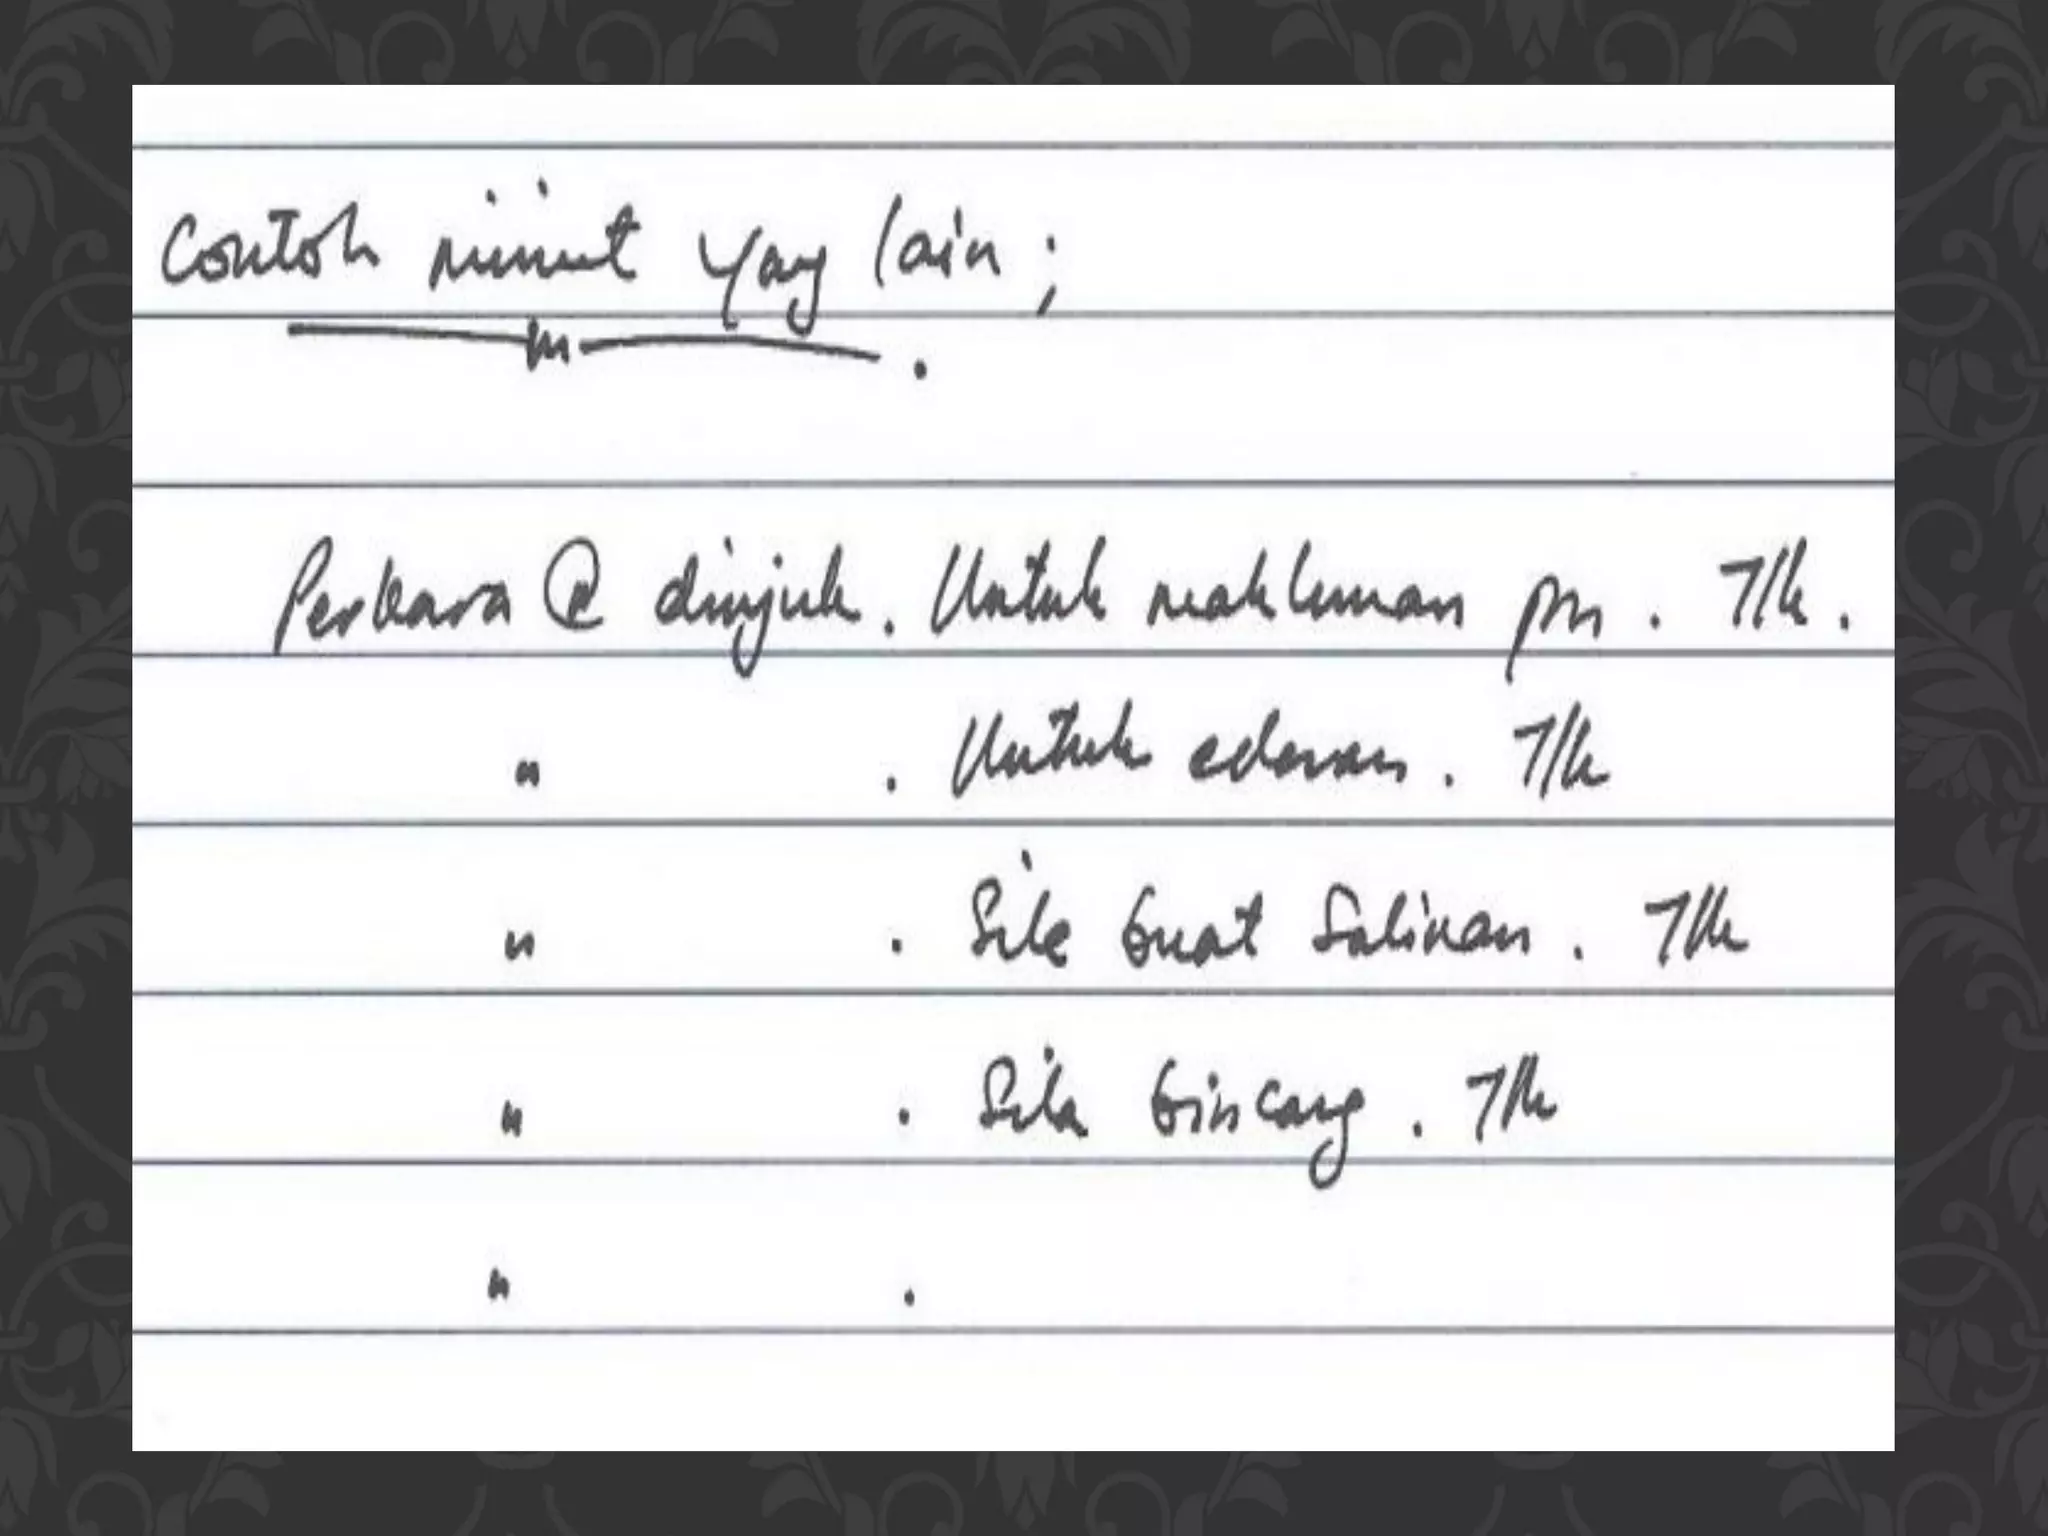 Contoh minit yang lain;
Perkara @ dirujuk. Untuk makluman pn. T/k.
" . Untuk edaran. T/k
" . Sila buat Salinan. T/k
" . Sila bincang. T/k
" .